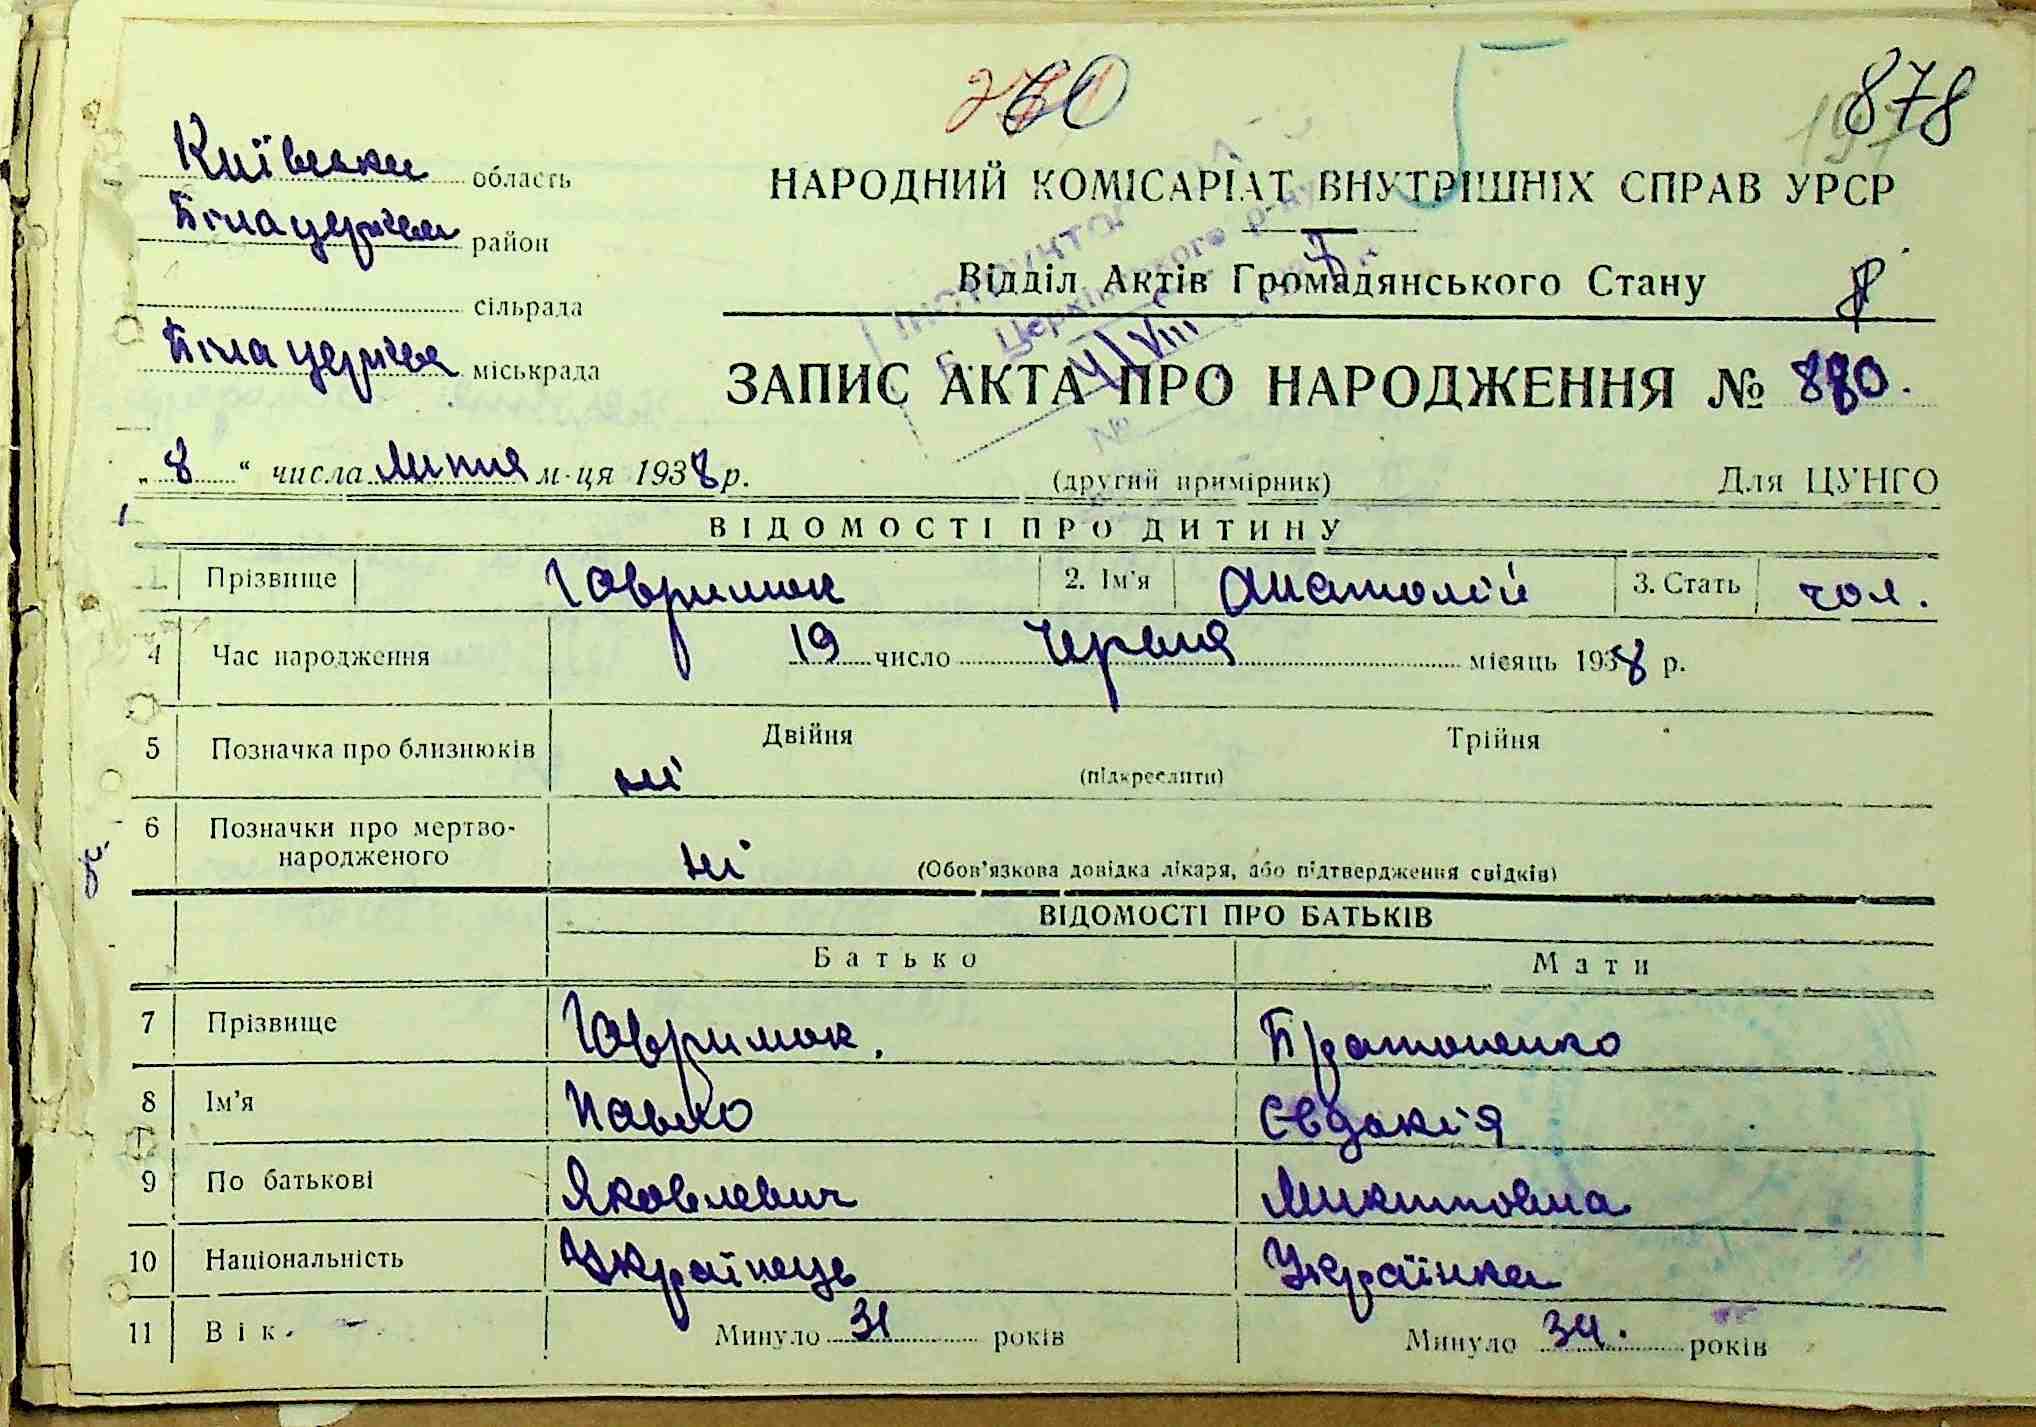 60
878
Київська область
НАРОДНИЙ КОМІСАРІАТ ВНУТРІШНІХ СПРАВ УРСР
Білацерква район
Відділ Актів Громадянського Стану
сільрада
Білацерква міськрада
ЗАПИС АКТА ПРО НАРОДЖЕННЯ № 880.
„8“ числа Липня м-ця 1938 р. (другий примірник) Для ЦУНГО
ВІДОМОСТІ ПРО ДИТИНУ
1 Прізвище Гаврилюк 2. Ім'я Анатолій 3. Стать чол.
4 Час народження 19 число Червня місяць 1938 р.
5 Позначка про близнюків ні Двійня Трійня
(підкреслити)
6 Позначки про мертво-
народженого ні (Обов'язкова довідка лікаря, або підтвердження свідків)
ВІДОМОСТІ ПРО БАТЬКІВ
Батько Мати
7 Прізвище Гаврилюк. Братоненко
8 Ім'я Павло Євдокія
9 По батькові Яковлевич Микитовна
10 Національність Українець Українка
11 Вік. Минуло 31 років Минуло 34. років